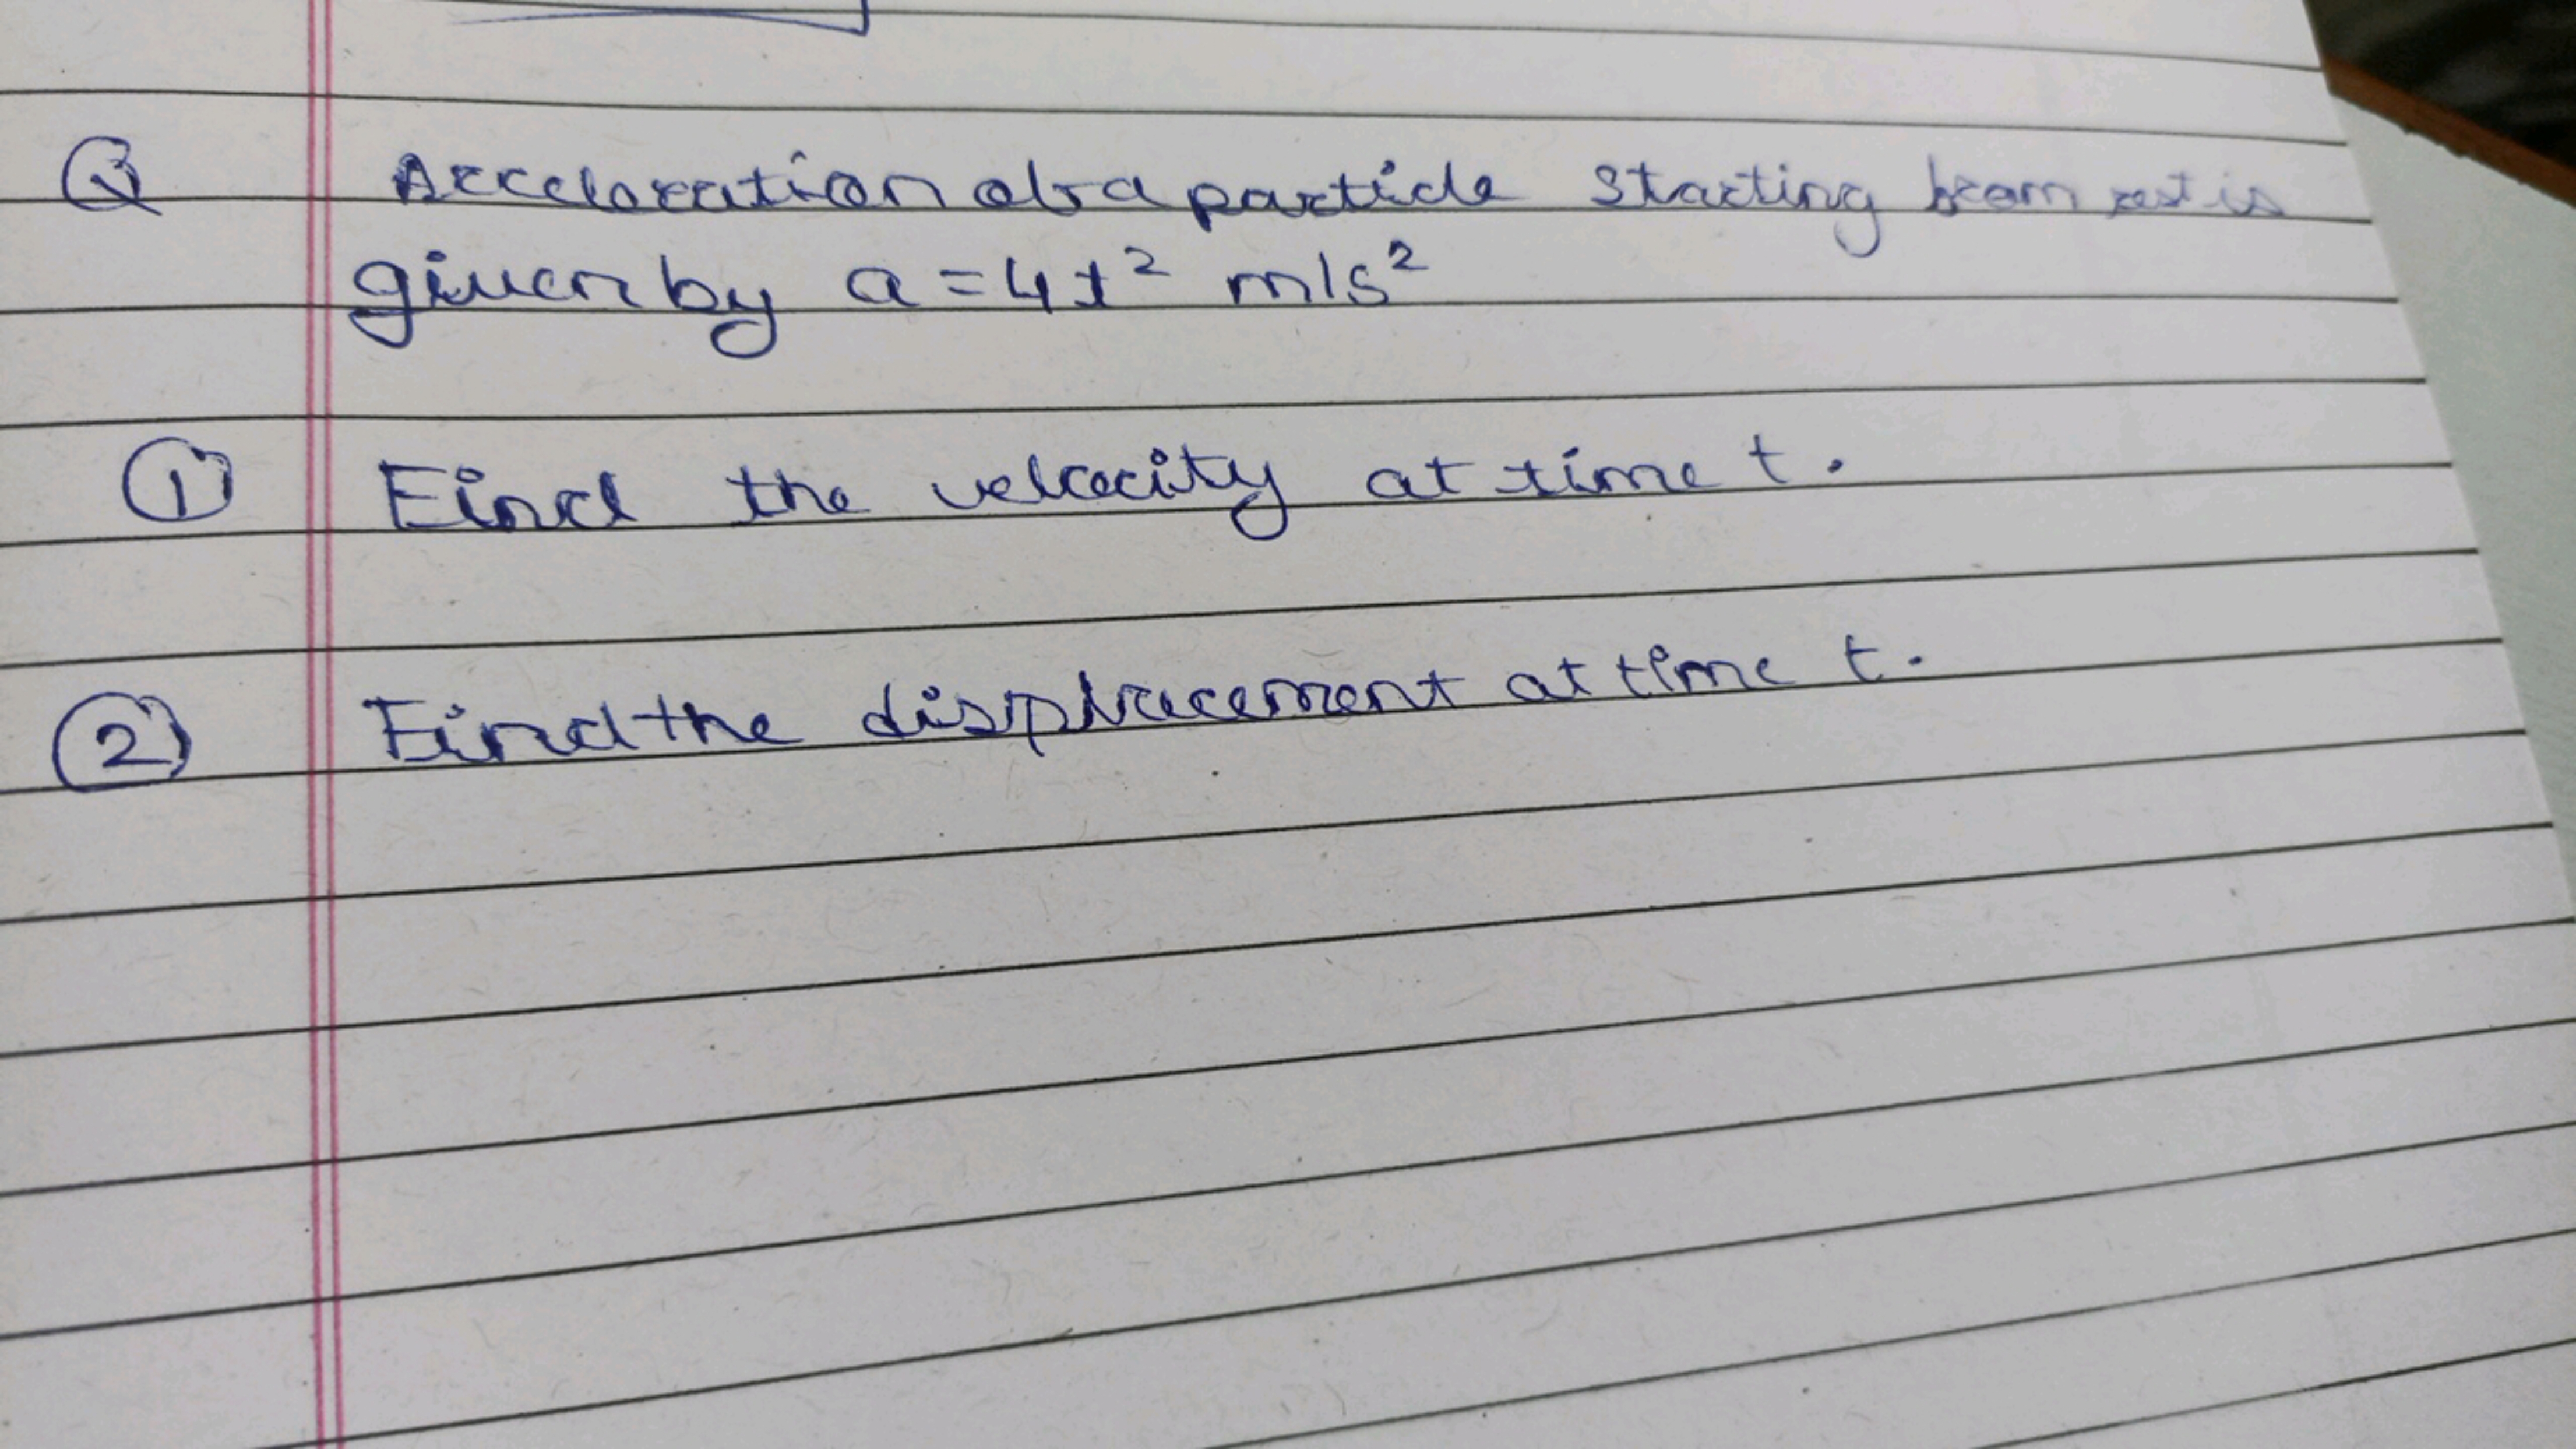 Q Acceleration of a particle starting from rest is
given by a = 4t² m/s²
① Find the velocity at time t.
② Find the displacement at time t.